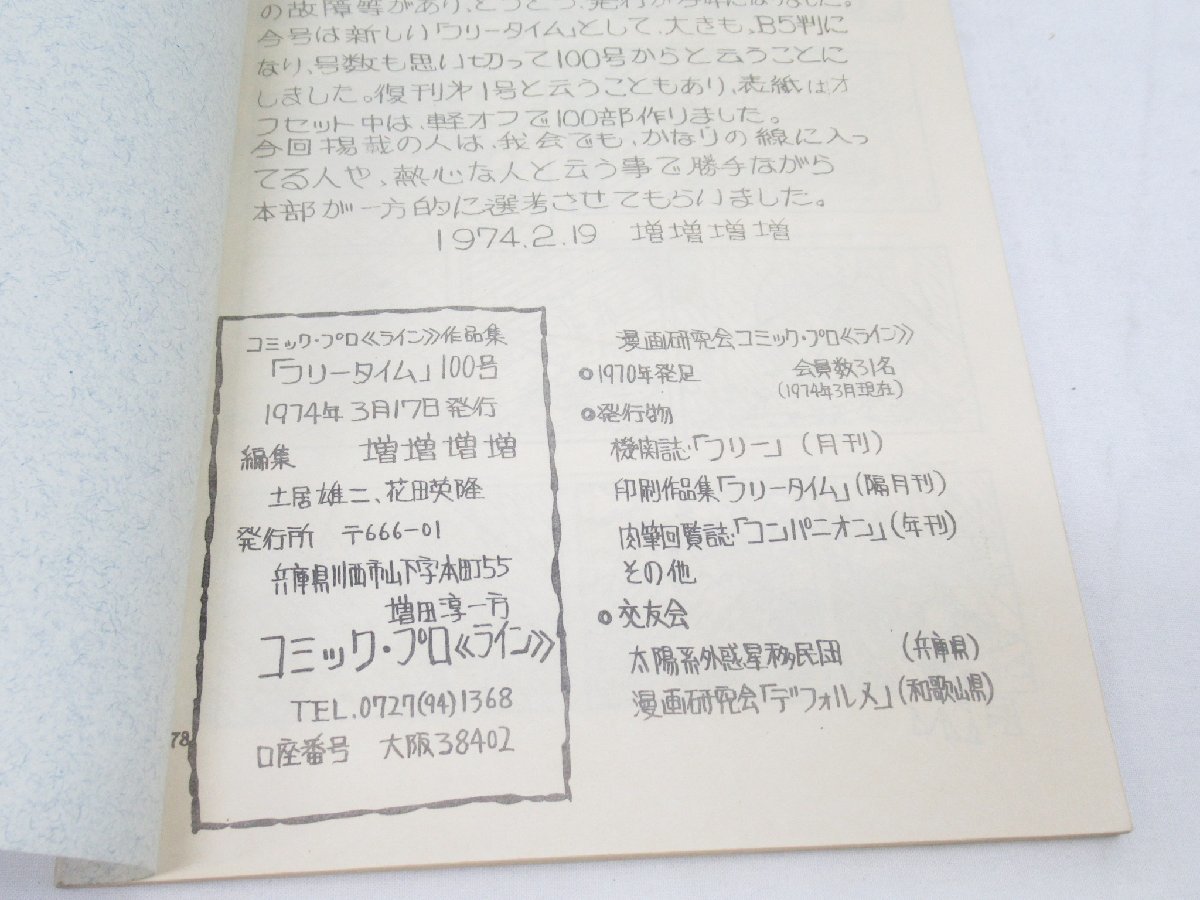 の故障等があり、とうとう、発行が今年になりました。
今号は新しい「フリータイム」として、大きも、B5判に
なり、号数も思い切って100号からと云うことに
しました。復刊才1号と云うこともあり、表紙はオ
フセット中は、軽オフで100部作りました。
今回掲載の人は、我会でも、かなりの線に入っ
てる人や、熱心な人と云う事で勝手ながら
本部が一方的に選考させてもらいました。
1974.2.19 増増増増
コミック・プロ《ライン》作品集
「フリータイム」100号
1974年3月17日発行
編集 増増増増
土居雄二、花田英隆
発行所 〒666-01
兵庫県川西市山下字本町55
増田淳一方
コミック・プロ《ライン》
TEL.0727(94)1368
口座番号 大阪38402
78
漫画研究会コミック・プロ《ライン》
◎1970年発足 会員数31名
(1974年3月現在)
◎発行物
機関誌・「フリー」(月刊)
印刷作品集「フリータイム」(隔月刊)
肉筆回覧誌・「コンパニオン」(年刊)
その他
◎交友会
太陽系外惑星移民団 (兵庫県)
漫画研究会「デフォルメ」(和歌山県)